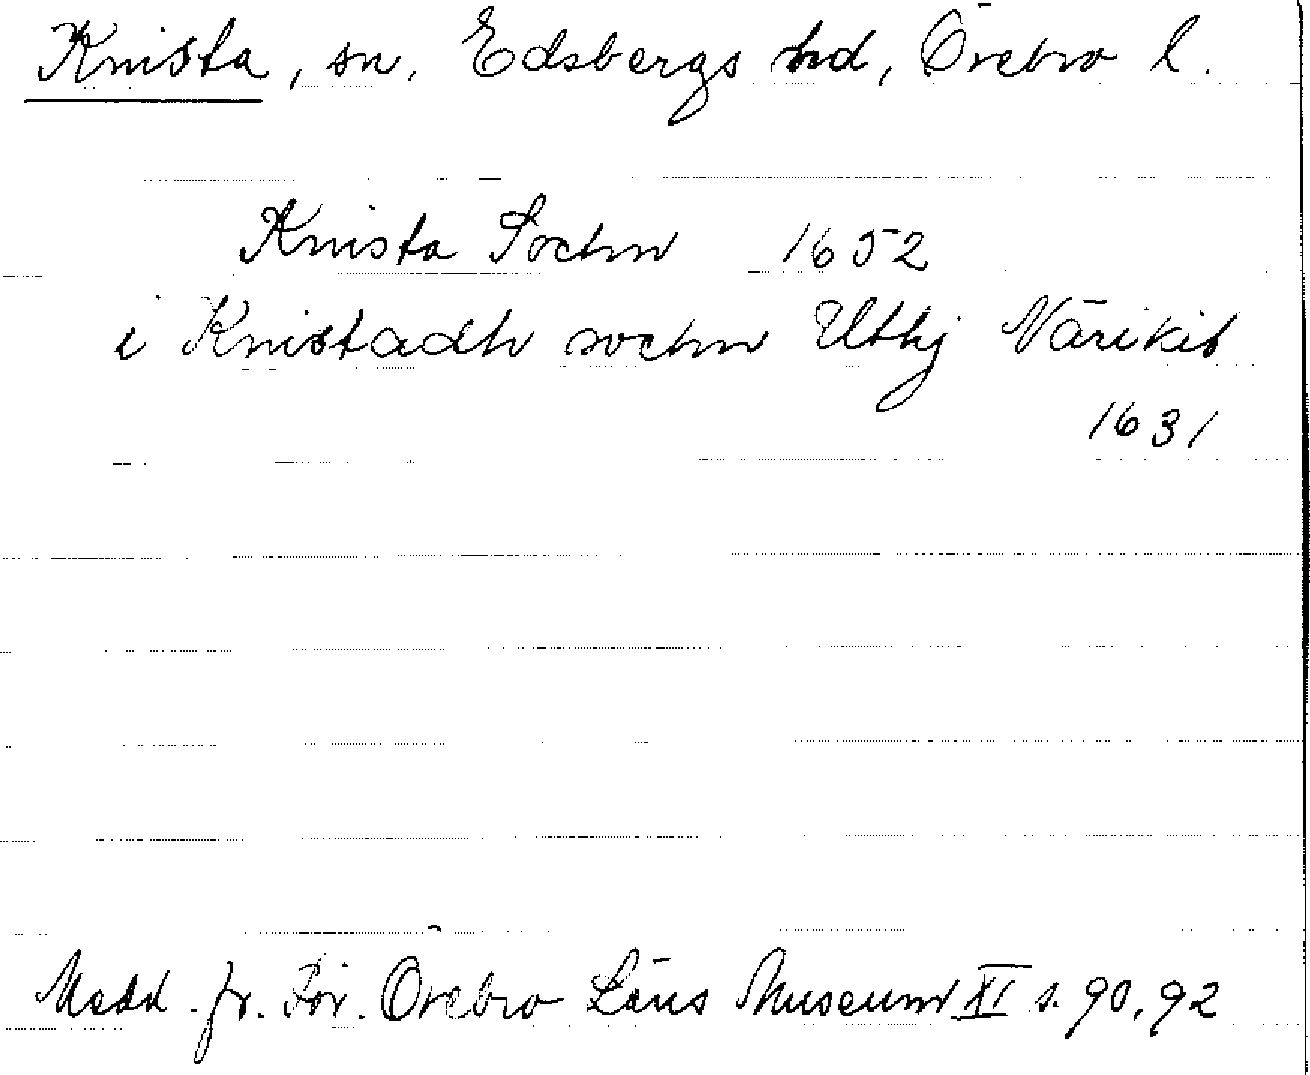 Knista, sn, Edsbergs hd, Örebro l.
Knista Sochn 1652
i Knistadh sochn Uthj Närikis
1631
Medd. fr. För. Örebro Läns Museum XI s. 90, 92